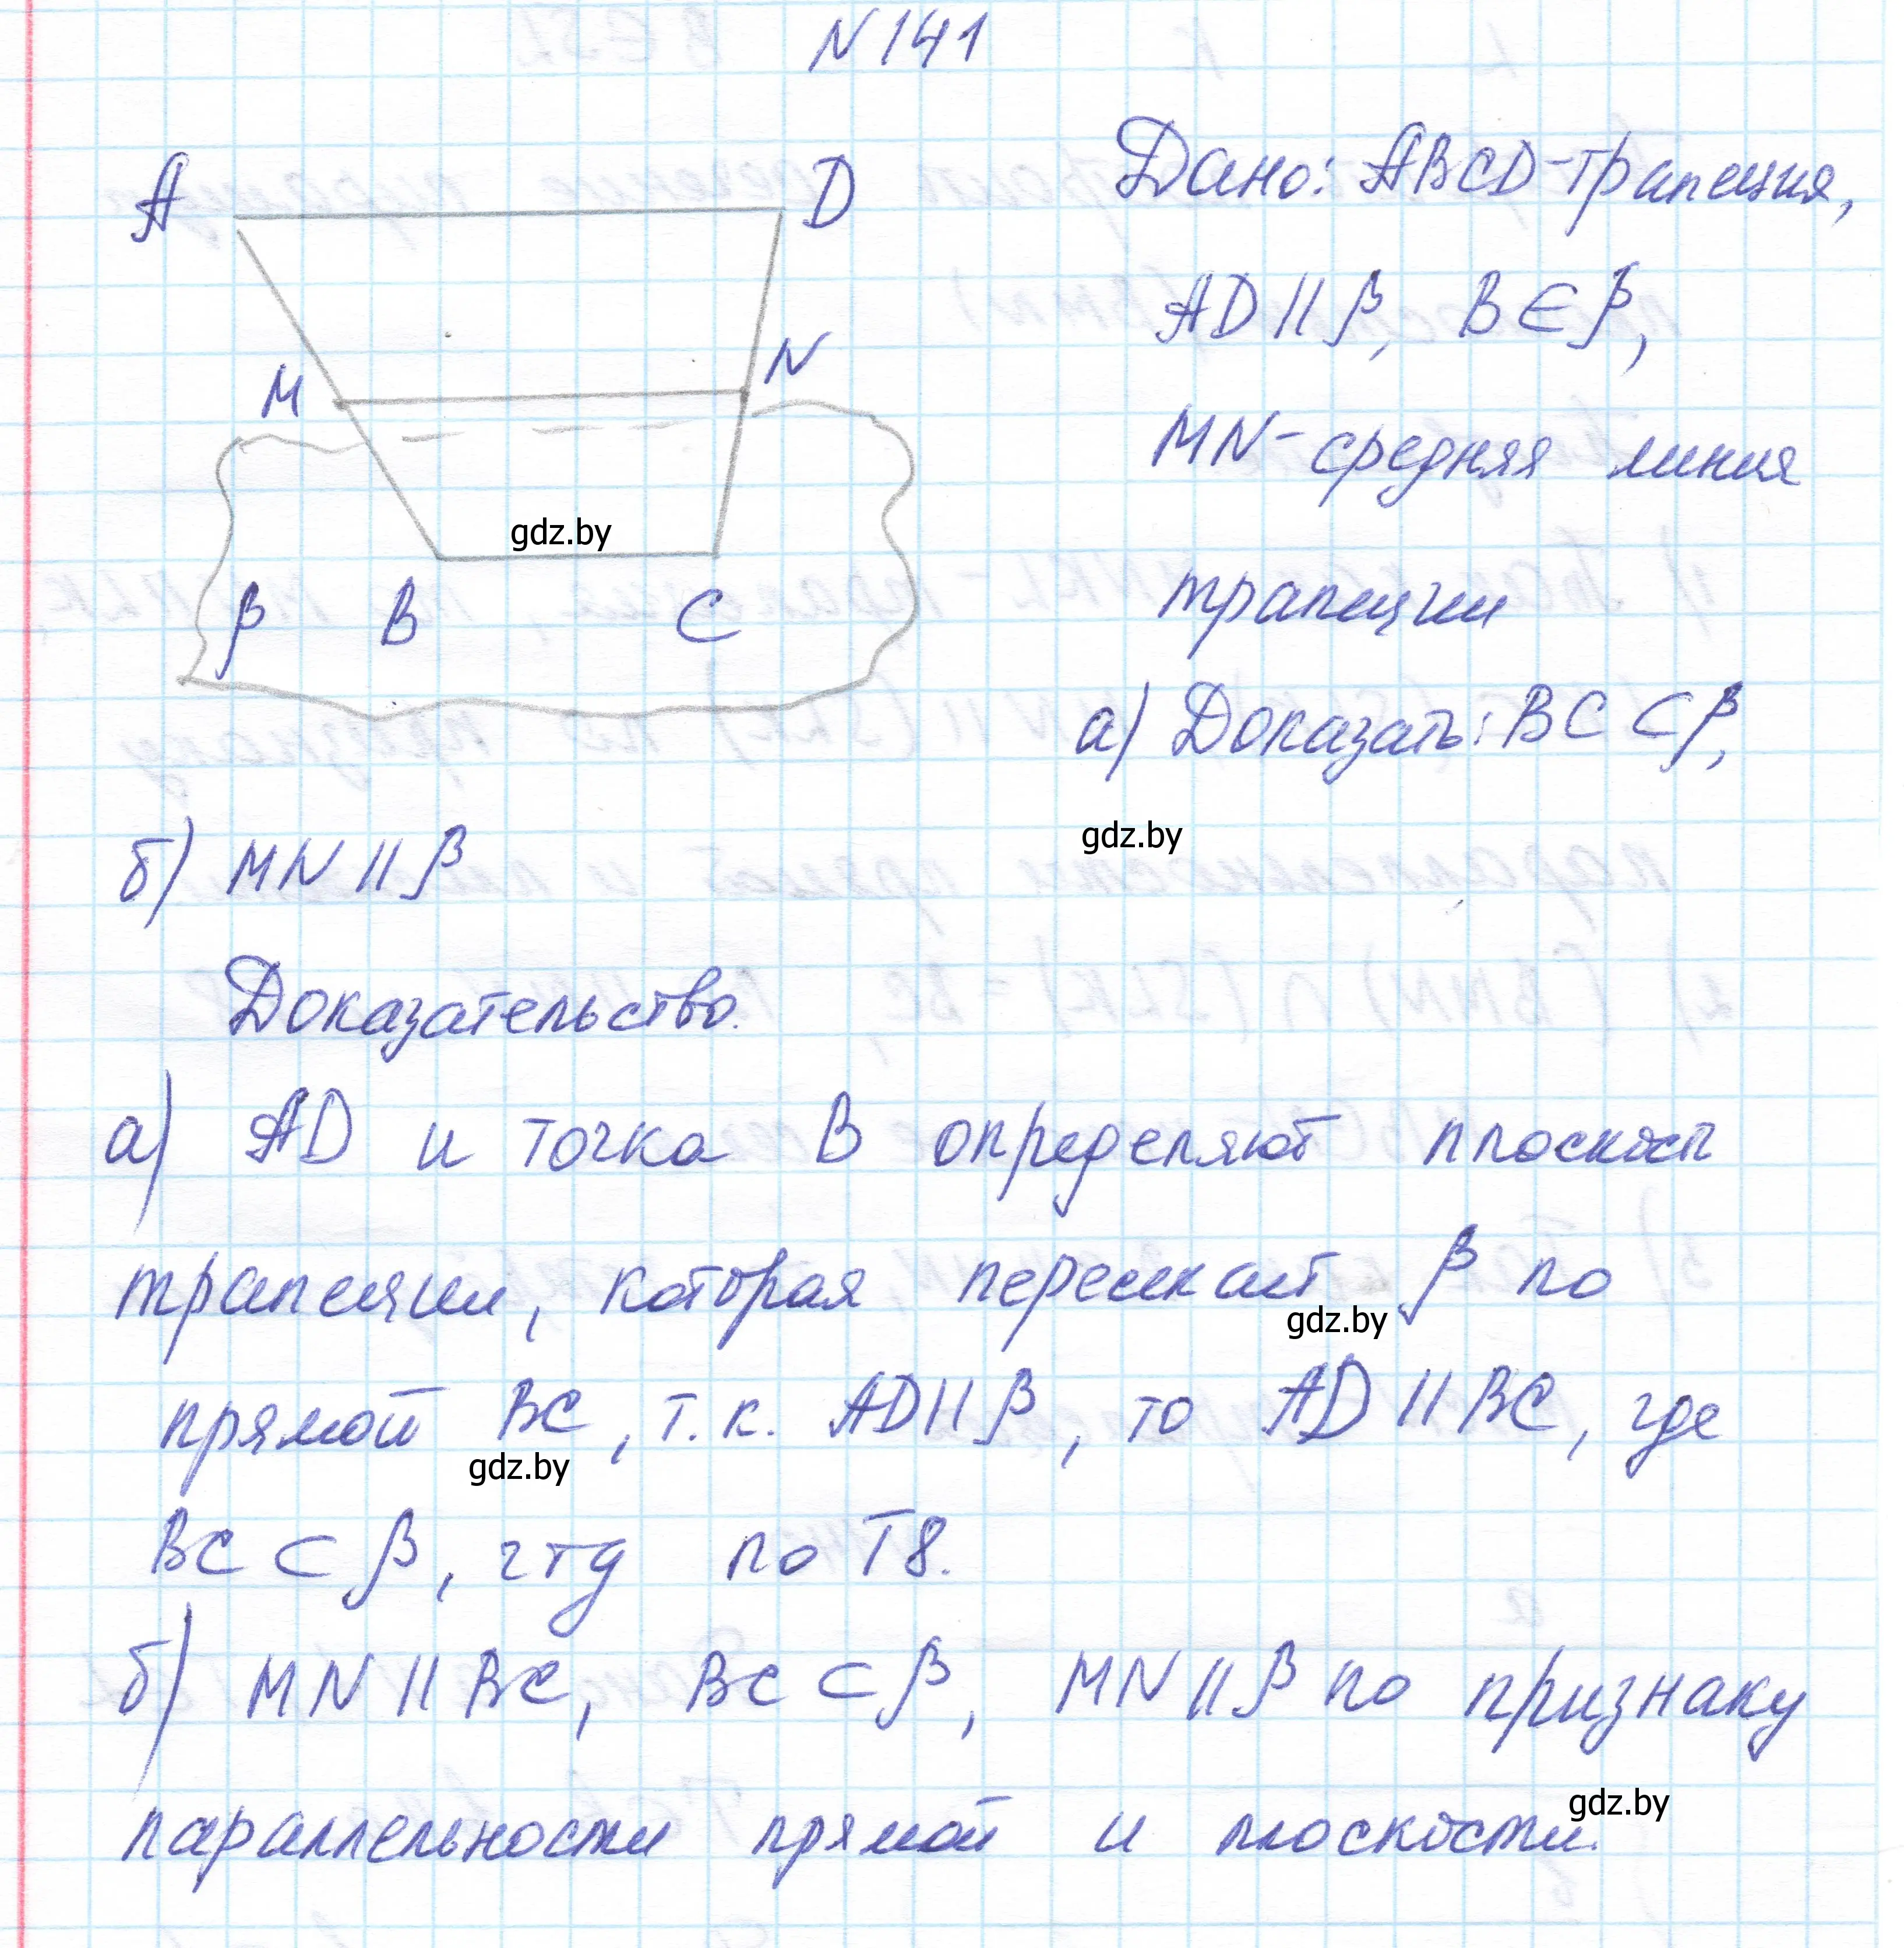 N 141
A
D
Дано: ABCD-трапеция,
AD || β, B ∈ β,
M
N
MN-средняя линия
gdz.by
трапеции
β
B
C
а) Доказать: BC ⊂ β,
gdz.by
б) MN || β
Доказательство.
а) AD и точка B определяют плоскость
трапеции, которая пересекает β по
gdz.by
прямой BC, т.к. AD || β, то AD || BC, где
gdz.by
BC ⊂ β, чтд по Т8.
б) MN || BC, BC ⊂ β, MN || β по признаку
gdz.by
параллельности прямой и плоскости.